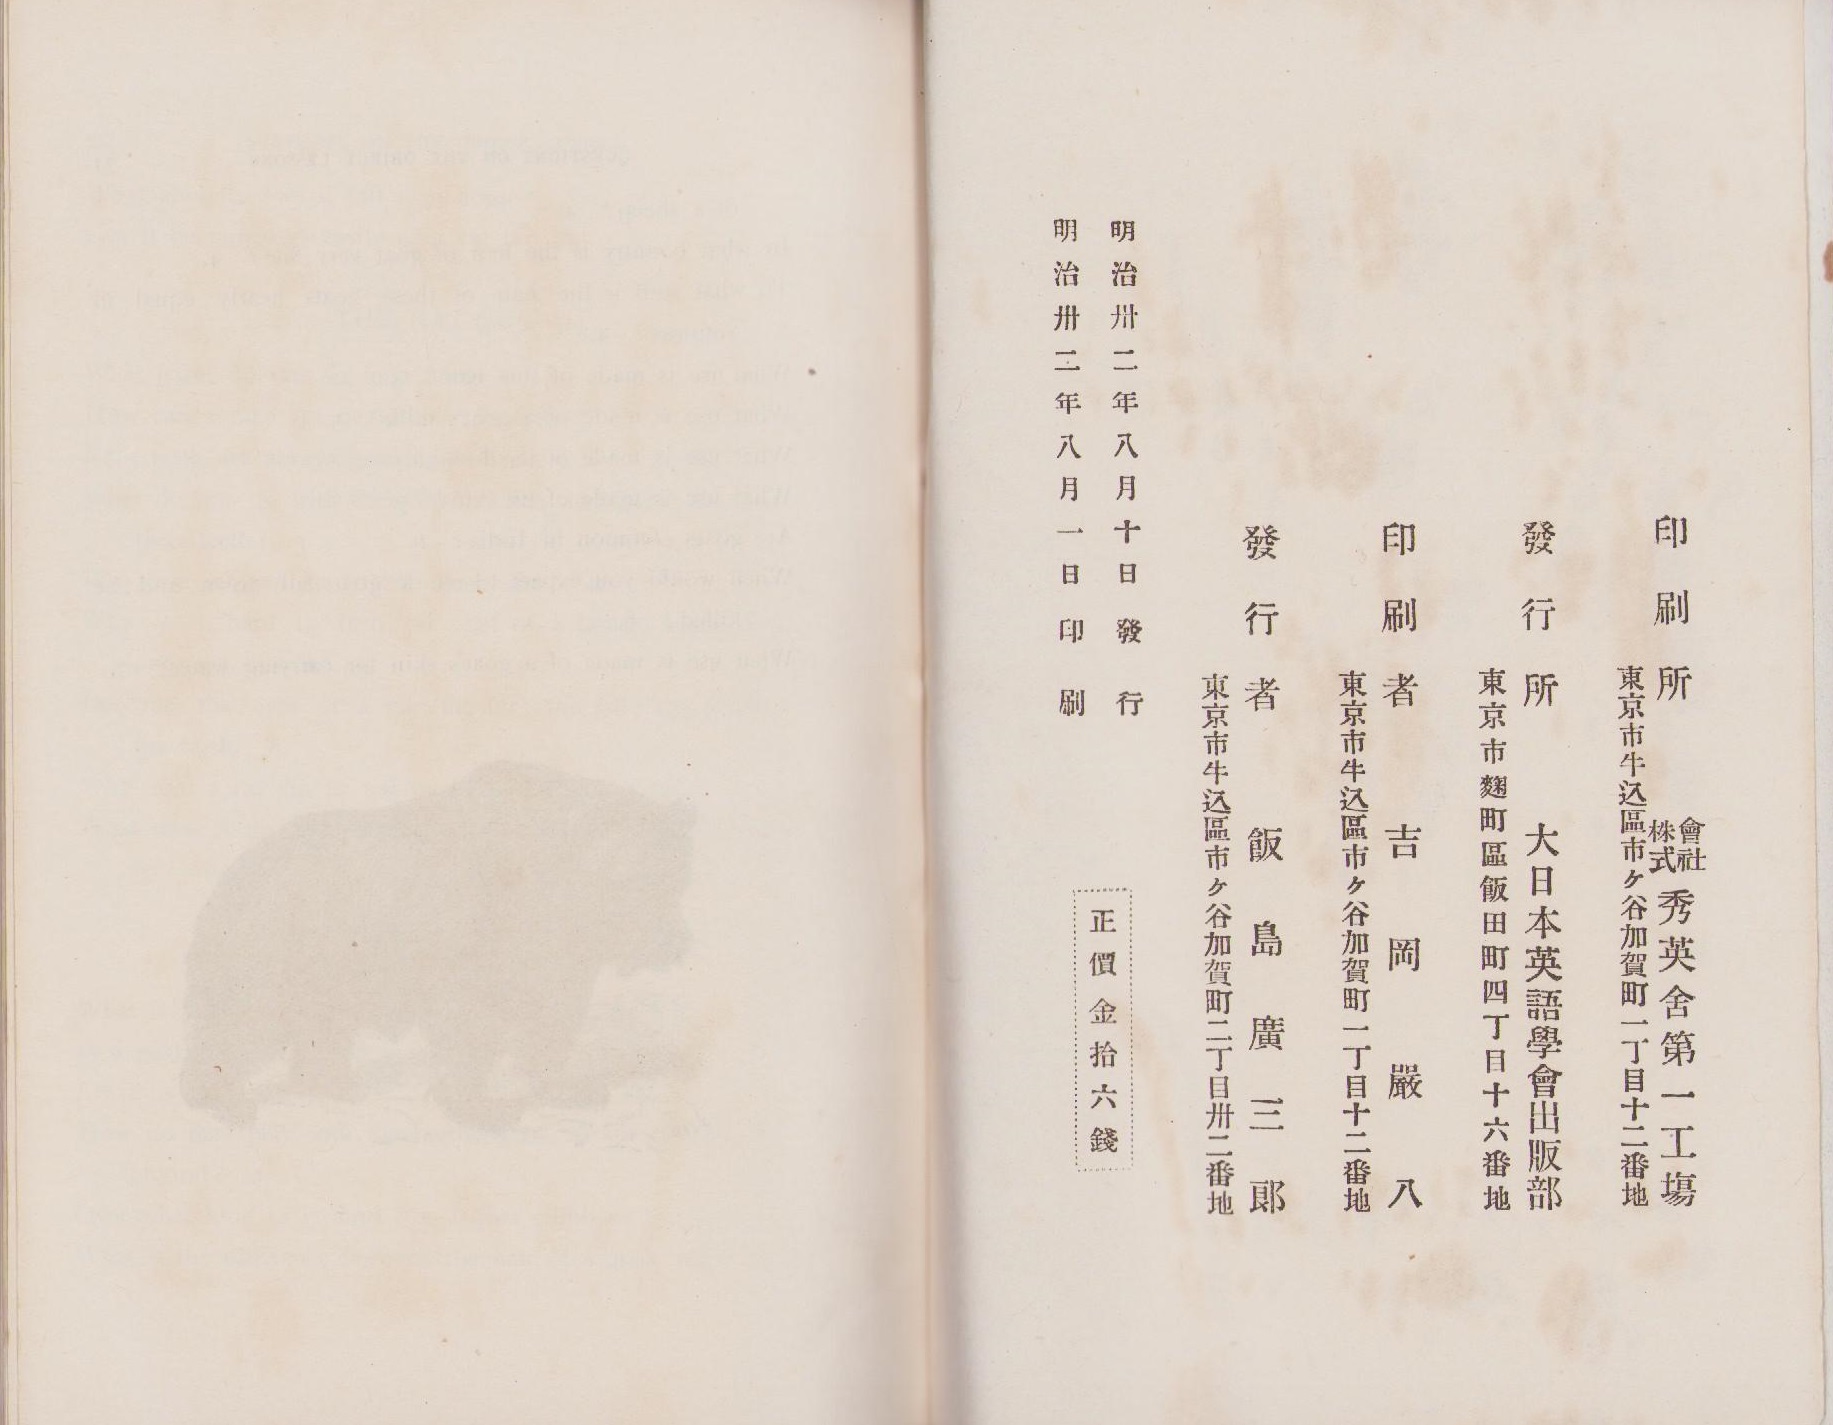 印刷所 株式會社 秀英舍第一工塲
東京市牛込區市ケ谷加賀町一丁目十二番地
發行所 大日本英語學會出版部
東京市麴町區飯田町四丁目十六番地
印刷者 吉岡嚴八
東京市牛込區市ケ谷加賀町一丁目十二番地
發行者 飯島廣三郎
東京市牛込區市ケ谷加賀町二丁目卅二番地
明治卅二年八月十日發行
明治卅二年八月一日印刷
正價金拾六錢